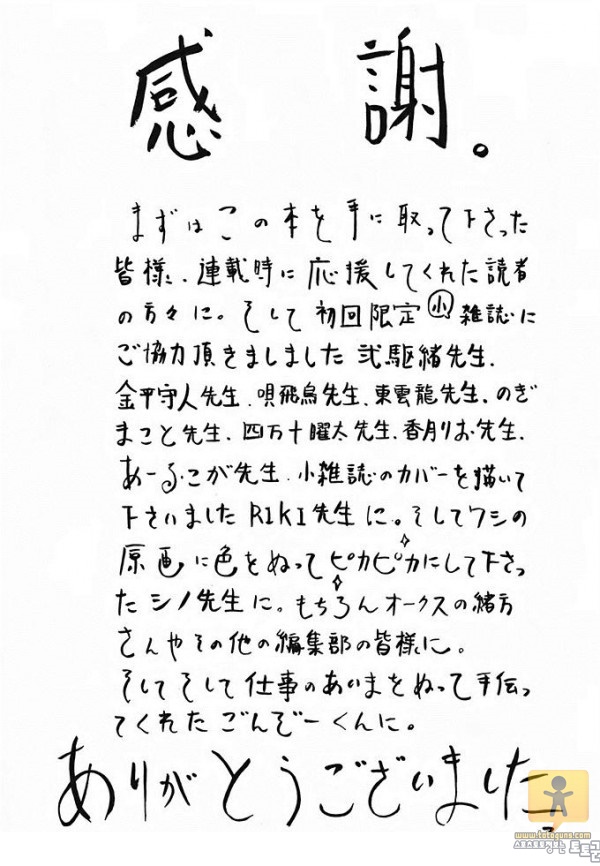 感謝。
まずはこの本を手に取って下さった
皆様、連載時に応援してくれた読者
の方々に。そして初回限定小雑誌に
ご協力頂きましました 弐駆緒先生、
金平守人先生、唄飛鳥先生、東雲龍先生、のぎ
まこと先生、四万十曜太先生、香月りお先生、
あーる・こが先生、小雑誌のカバーを描いて
下さいました RIKI先生に。そしてワシの
原画に色をぬってピカピカにして下さっ
たシノ先生に。もちろんオークスの緒方
さんやその他の編集部の皆様に。
そしてそして仕事のあいまをぬって手伝っ
てくれたごんぞーくんに。
ありがとうございました。
www.totoguns.com